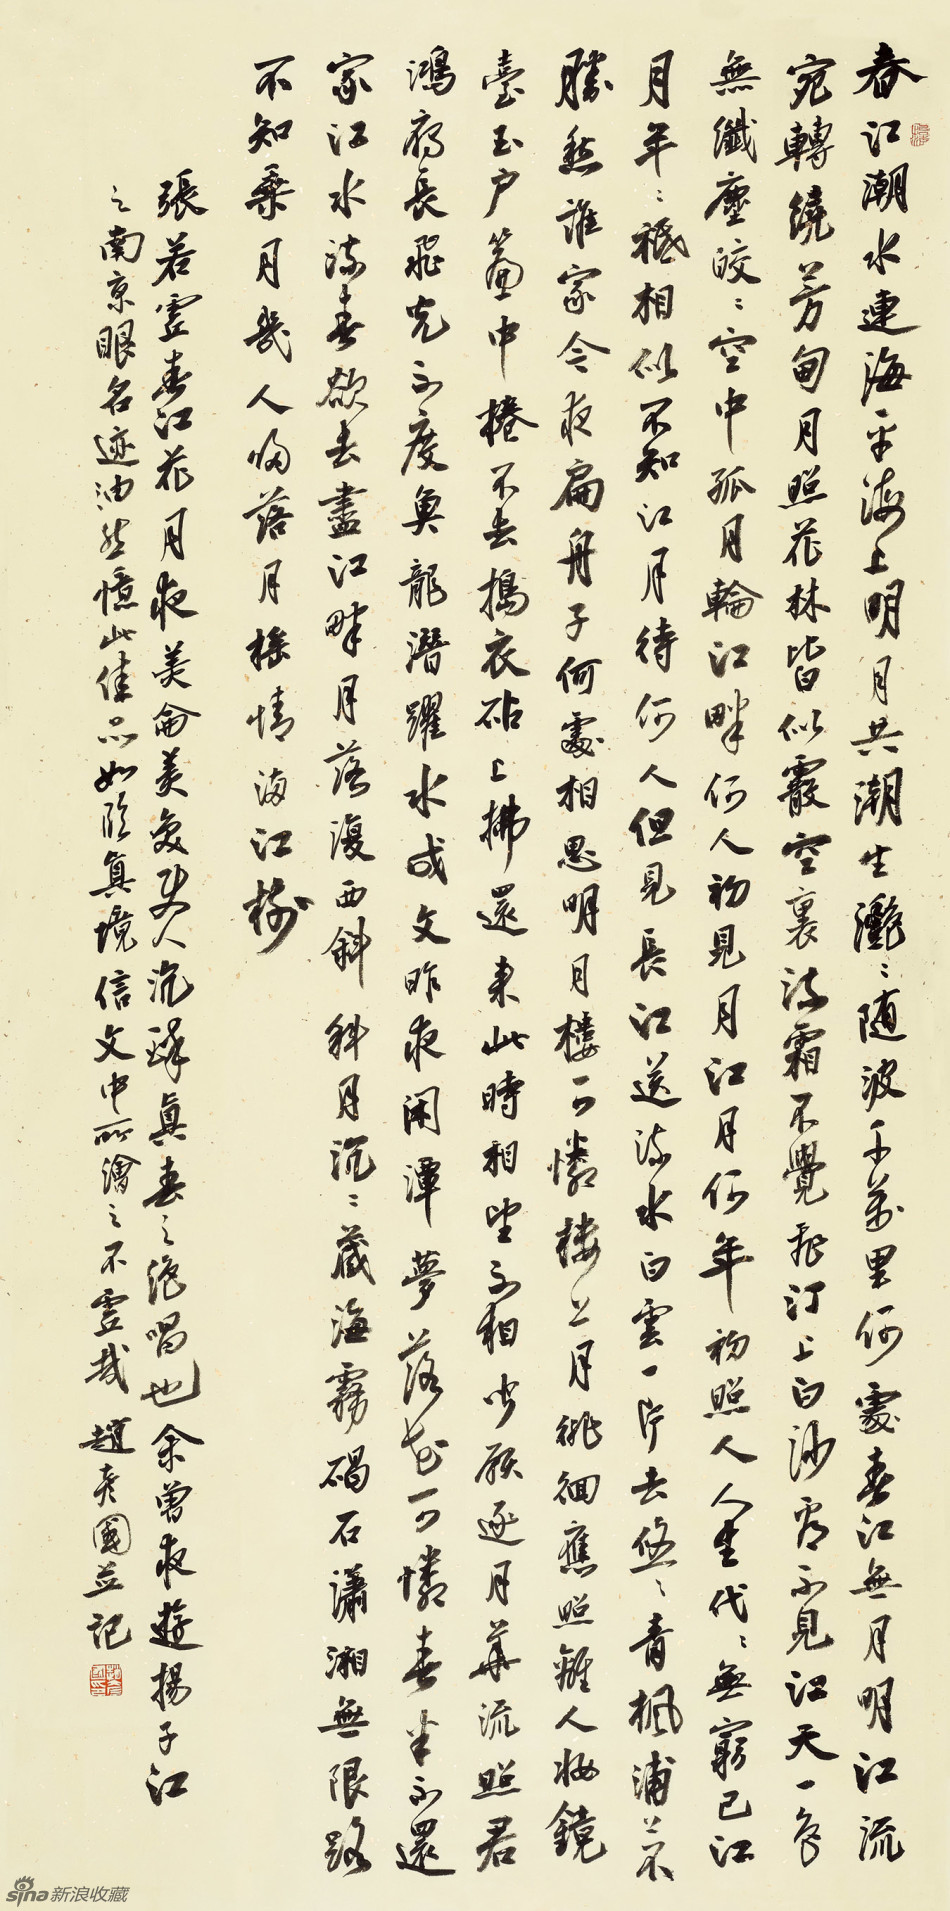 春江潮水連海平海上明月共潮生灩〻随波千萬里何處春江無月明江流
宛轉繞芳甸月照花林皆似霰空裏流霜不覺飛汀上白沙看不見江天一色
無纖塵皎〻空中孤月輪江畔何人初見月江月何年初照人人生代〻無窮已江
月年〻祗相似不知江月待何人但見長江送流水白雲一片去悠〻青楓浦上不
勝愁誰家今夜扁舟子何處相思明月樓可憐楼上月徘徊應照離人妝鏡
臺玉户簾中捲不去搗衣砧上拂還来此時相望不相聞願逐月華流照君
鴻雁長飛光不度魚龍潛躍水成文昨夜闲潭夢落花可憐春半不還
家江水流春欲去盡江畔月落復西斜斜月沉〻藏海霧碣石潇湘無限路
不知乘月幾人歸落月摇情满江樹
張若虚春江花月夜美侖美奂使人沉醉真春之绝唱也余曾夜遊揚子江
之南京眼名迹油然憶此佳品如临真境信文中所繪之不虚哉 趙彦國并記
sina新浪收藏